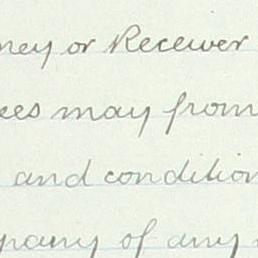 ney or Receiver
ees may from
and condition
pany of any